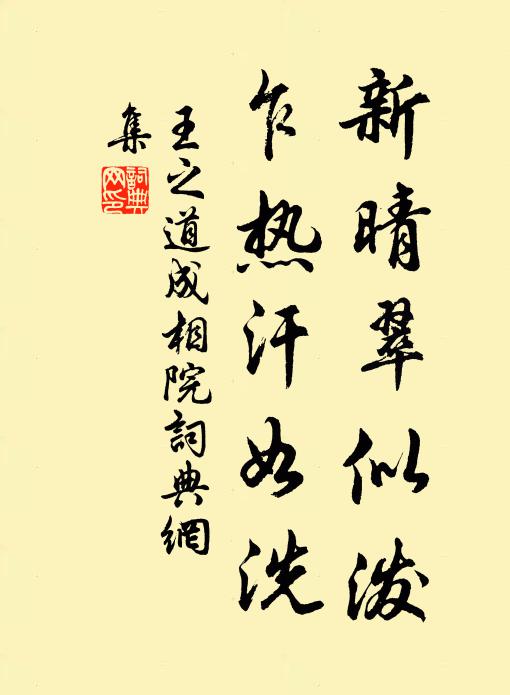 新晴翠似泼
乍热汗如洗
王之道成相院詞典網
集
詞典网印